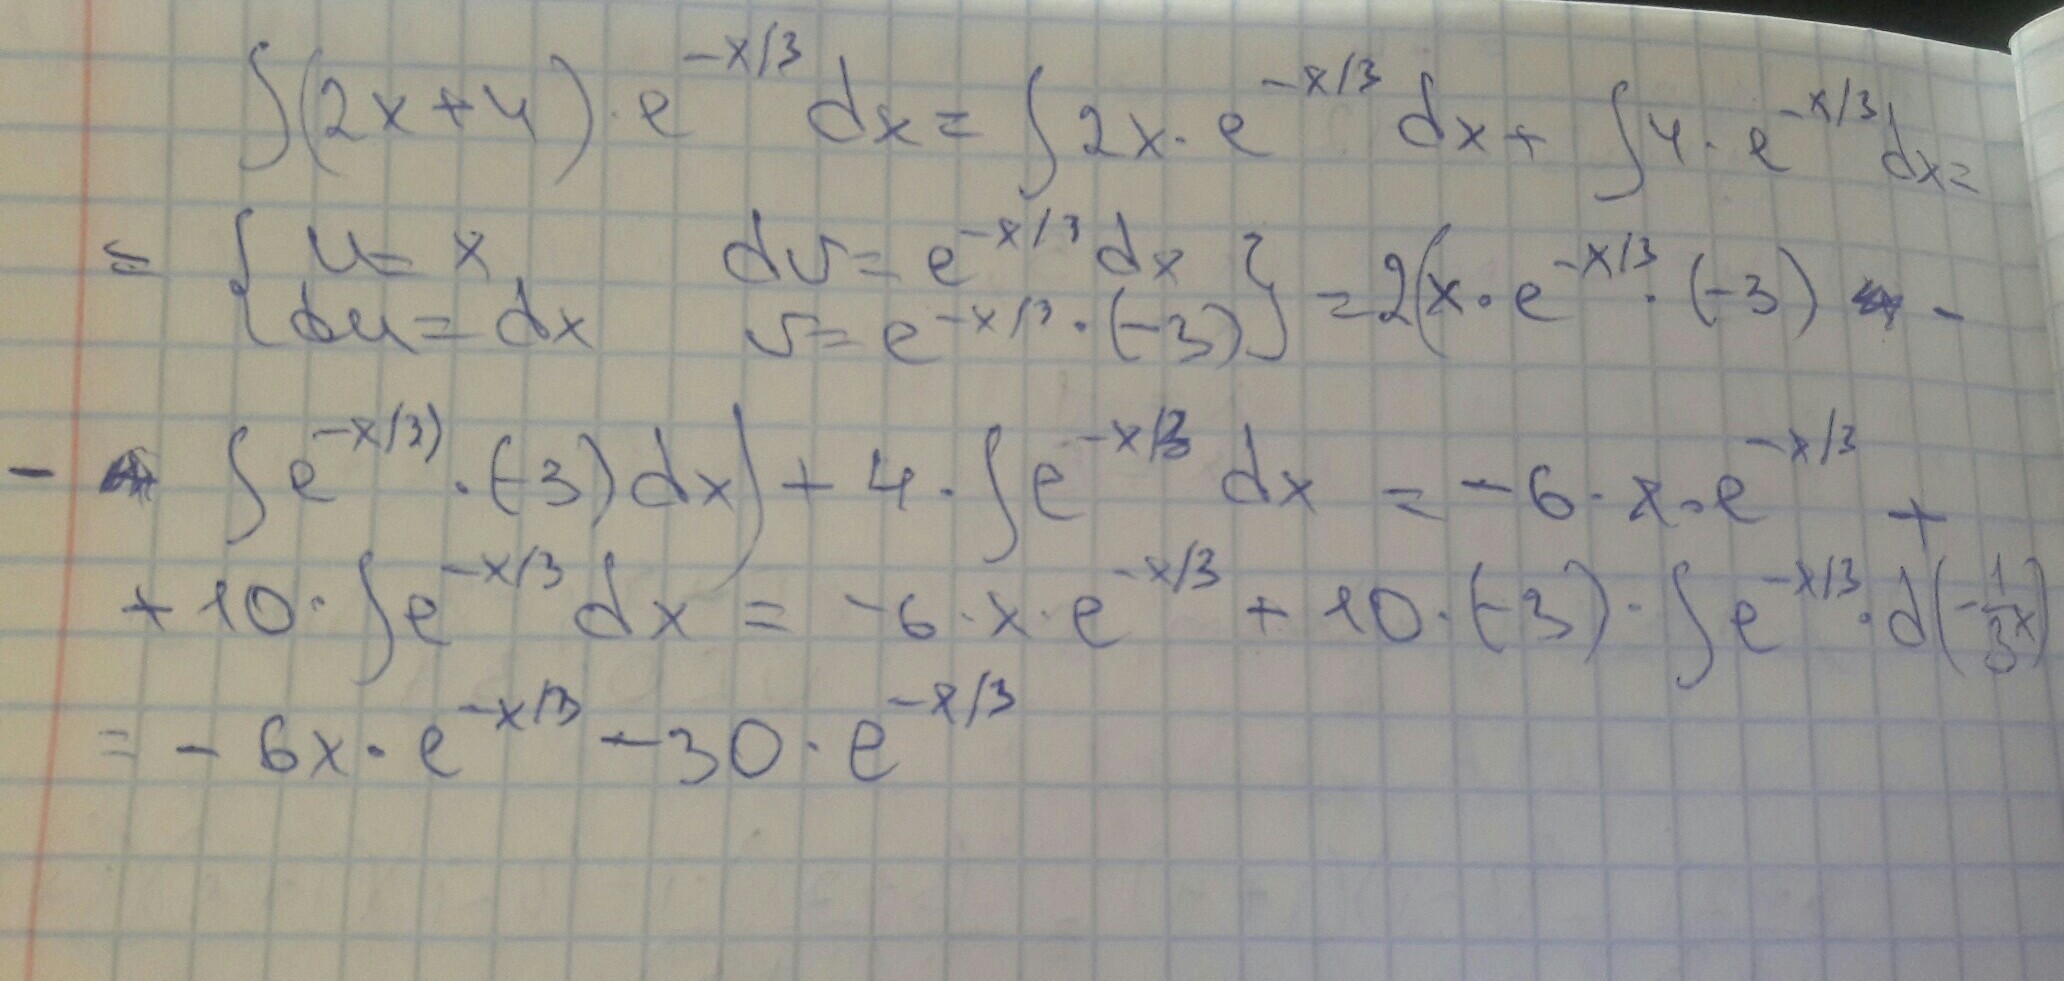 ∫(2x+4)·e^{-x/3} dx = ∫2x·e^{-x/3} dx + ∫4·e^{-x/3} dx =
= { u = x dv = e^{-x/3} dx } = 2(x·e^{-x/3}·(-3) -
du = dx v = e^{-x/3}·(-3)
- ∫e^{-x/3)}·(-3)dx) + 4·∫e^{-x/3} dx = -6·x·e^{-x/3} +
+ 10·∫e^{-x/3} dx = -6·x·e^{-x/3} + 10·(-3)·∫e^{-x/3}·d(-\frac{1}{3}x)
= -6x·e^{-x/3} - 30·e^{-x/3}